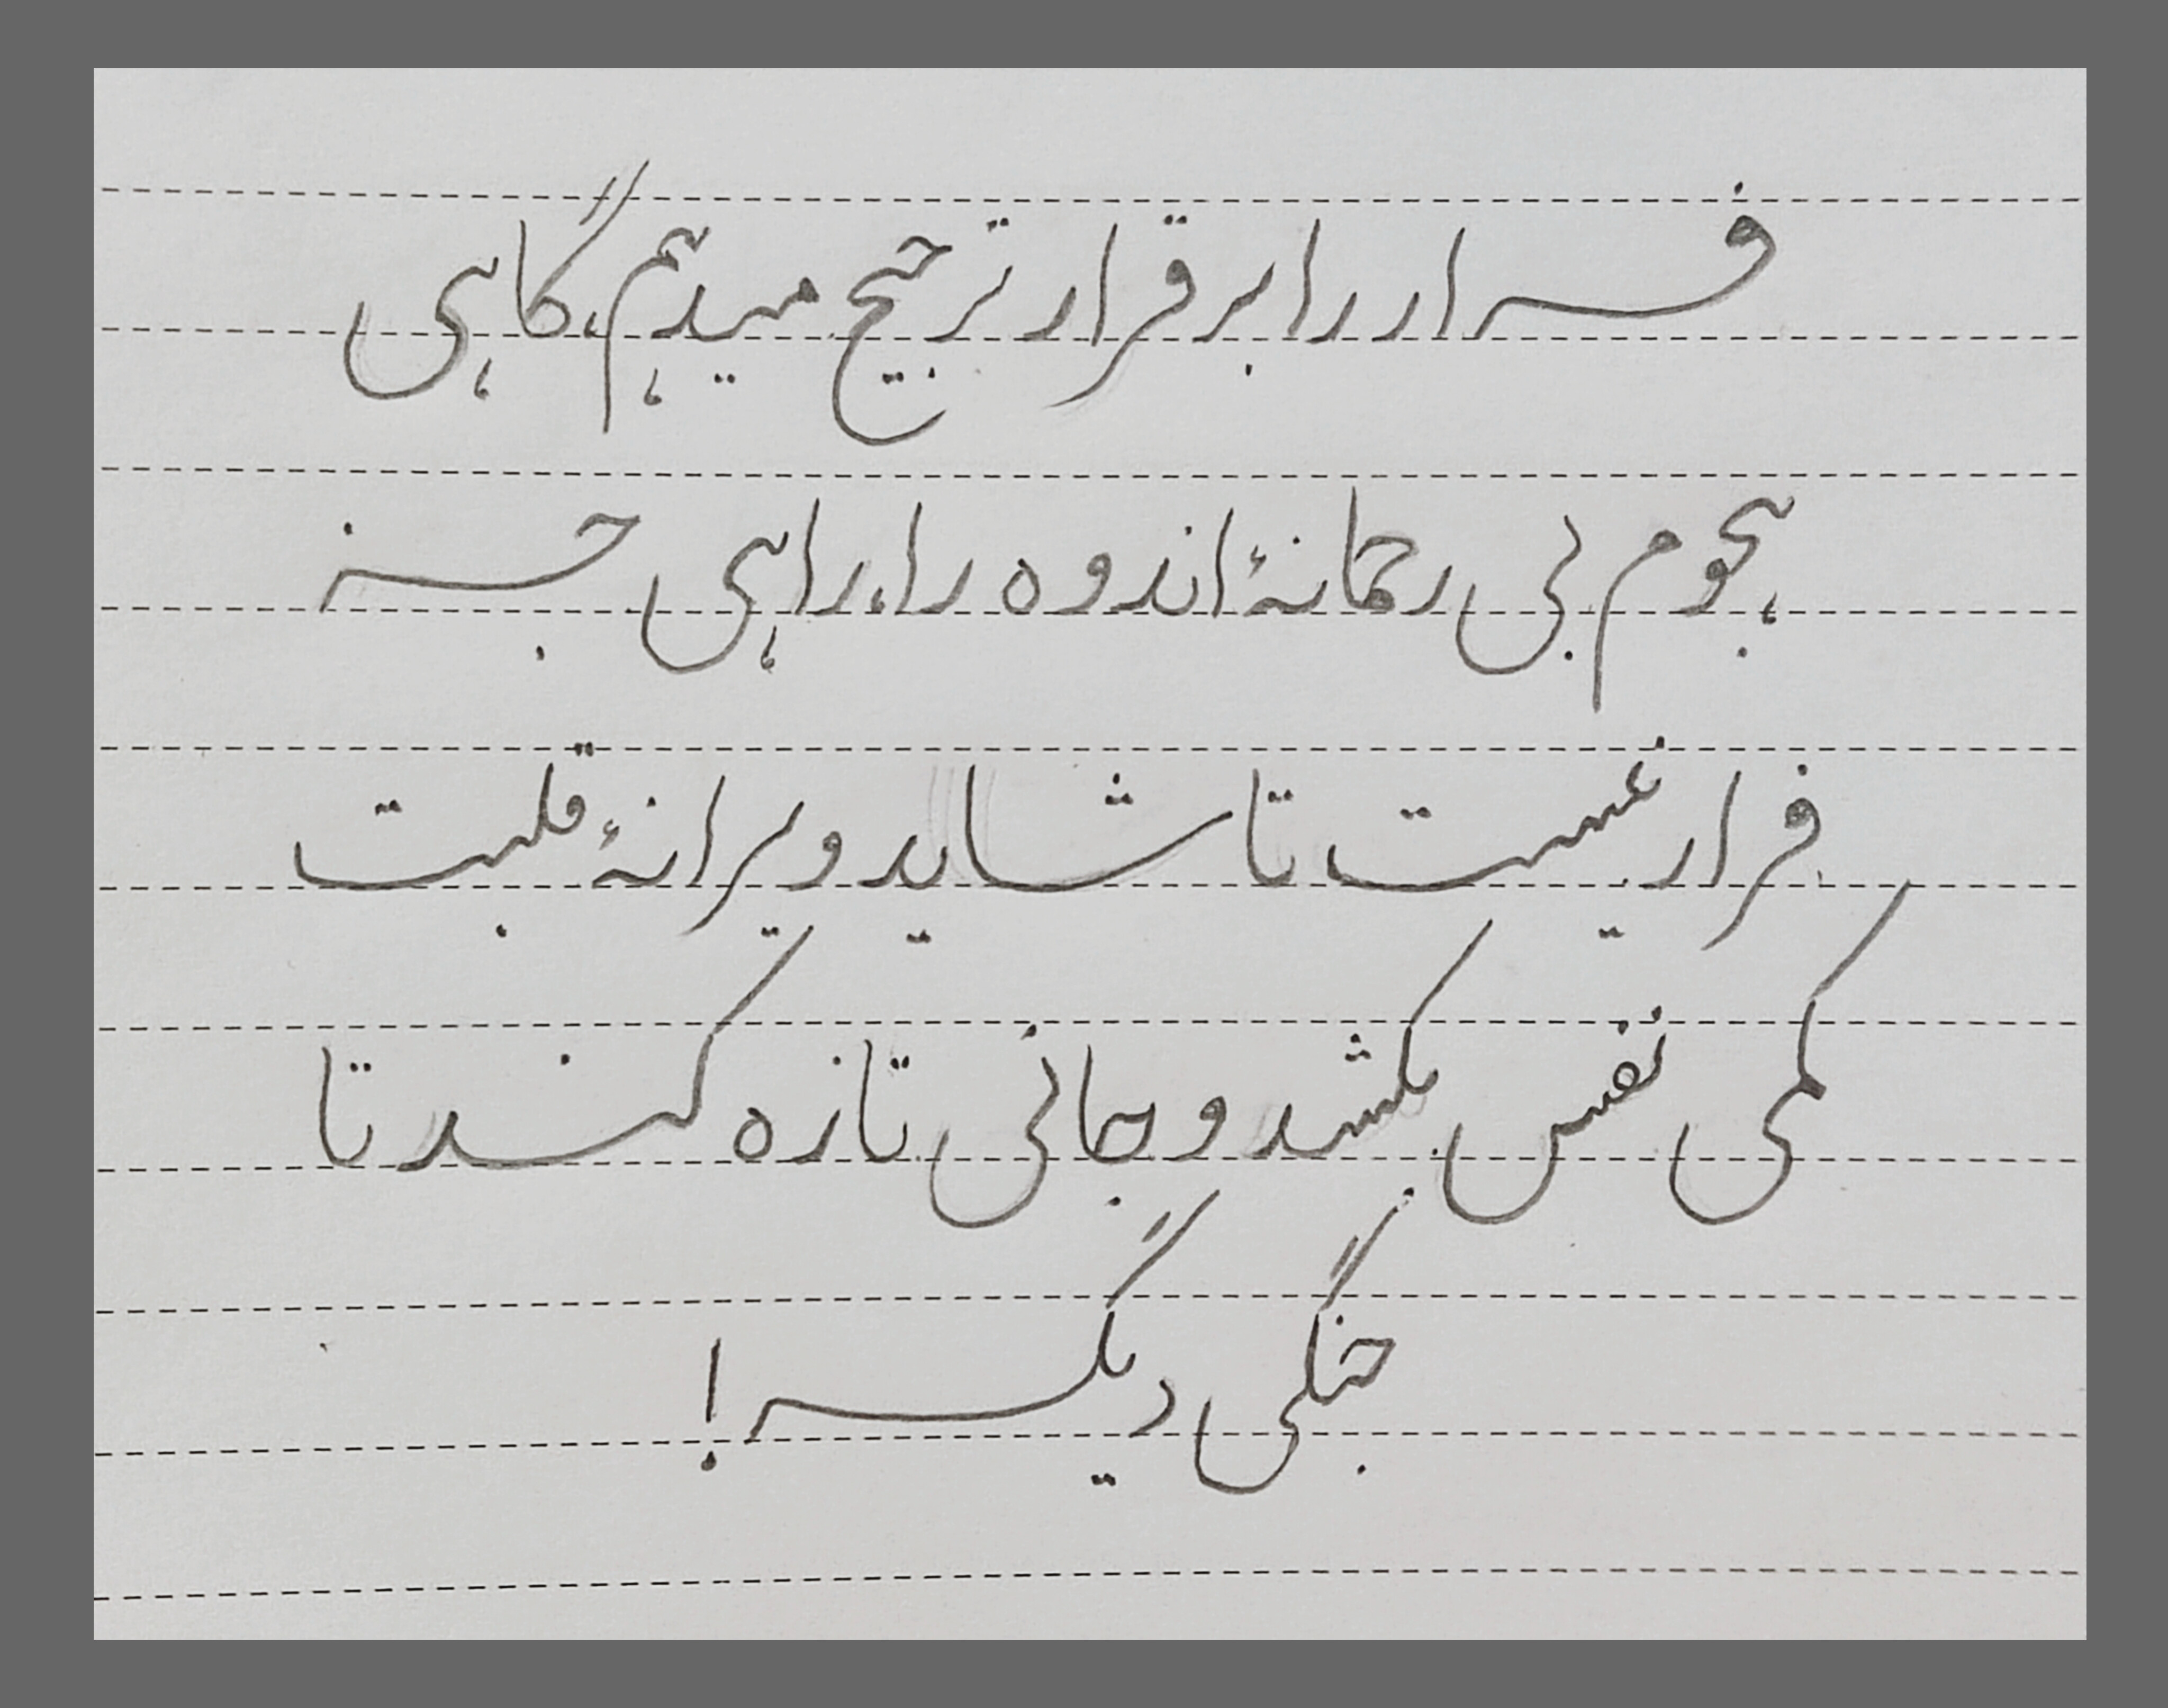 فرار را بر قرار ترجیح میدهم، گاهی
هجوم بی رحمانهٔ اندوه را، راهی جز
فرار نیست تا شاید ویرانهٔ قلبت
کمی نفس بکشد و جانی تازه کند تا
جنگی دیگر!